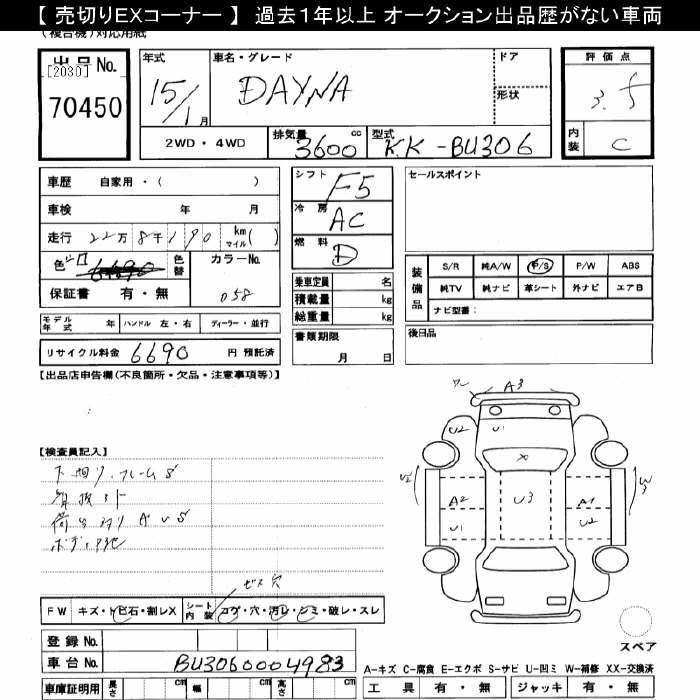 【 売切りEXコーナー 】 過去１年以上 オークション出品歴がない車両
(複合機)対応用紙
出品No.
[2030]
70450
年式 15/1月
車名・グレード DAYNA
ドア
形状
評価点 3.5
2WD・4WD
排気量 3600 cc
型式 KK-BU306
内装 C
車歴 自家用・( )
車検 年 月
走行 22万 8千 190 km マイル( )
色 シロ 6690 色替
カラーNo. 058
保証書 有・無
シフト F5
冷房 AC
燃料 D
セールスポイント
乗車定員 名
積載量 kg
総重量 kg
装備品
S/R 純A/W P/S P/W ABS
純TV 純ナビ 革シート 外ナビ エアB
ナビ型番：
モデル年式 年 ハンドル 左・右 ディーラー・並行
書類期限 月 日
後日品
リサイクル料金 6690 円 預託済
【出品店申告欄(不良箇所・欠品・注意事項等)】
【検査員記入】
下回り.フレームS
荷台 AUS
W A3
U2 U1
X
W2 A2 U3 A1 W3
U1 U2
ゼス穴
FW キズ・トビ石・割レX
シート内装 コゲ・穴・汚レ・シミ・破レ・スレ
登録No.
車台No. BU3060004983
スペア
A-キズ C-腐食 E-エクボ S-サビ U-凹ミ W-補修 XX-交換済
車庫証明用 長さ cm 幅 cm 高さ cm
工具 有・無 ジャッキ 有・無